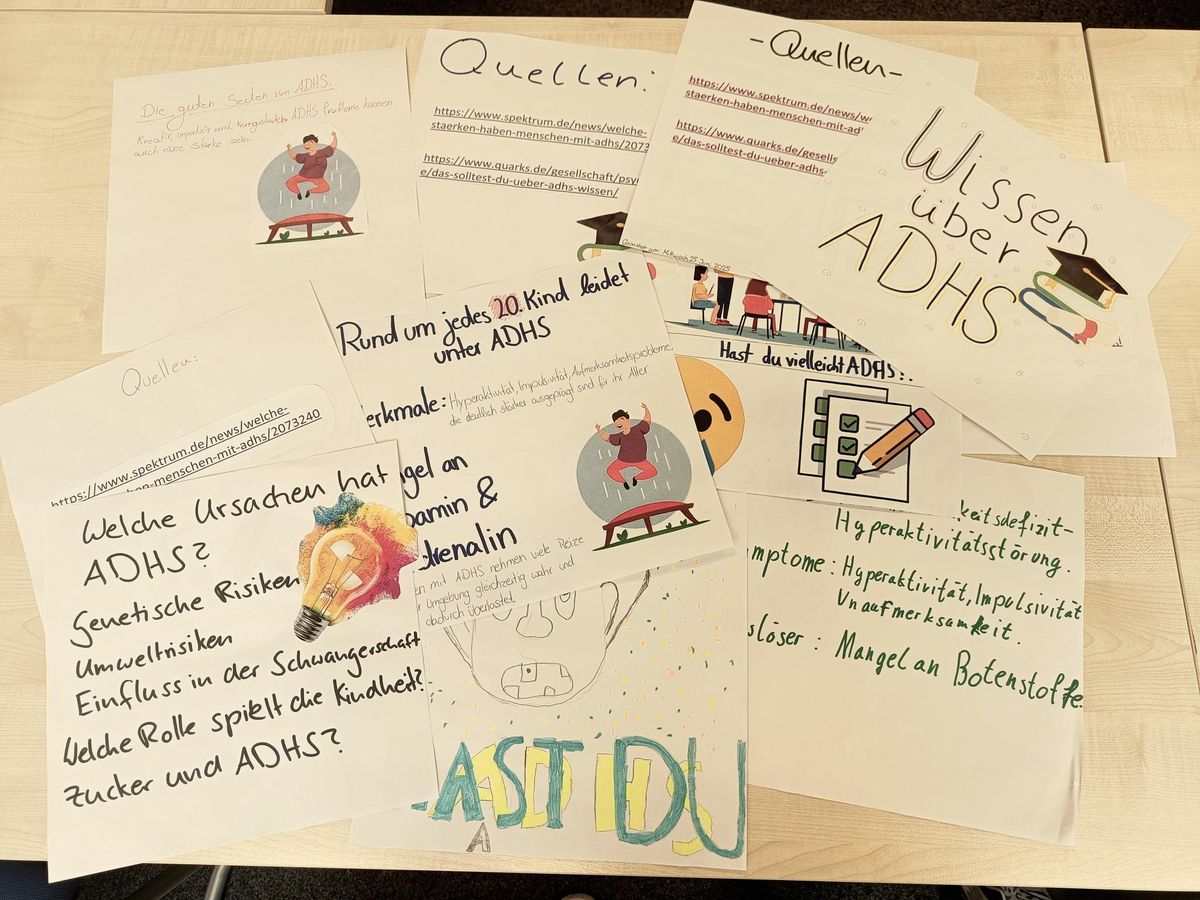 Die guten Seiten von ADHS.
Kreativ, impulsiv und ADHS Probleme können
auch eine Stärke sein.
Quellen:
https://www.spektrum.de/news/welche-
staerken-haben-menschen-mit-adhs/2073
https://www.quarks.de/gesellschaft/psy
e/das-solltest-du-ueber-adhs-wissen/
-Quellen-
https://www.spektrum.de/news/w
staerken-haben-menschen-mit-ad
https://www.quarks.de/gesells
e/das-solltest-du-ueber-adhs-
am: Mittwoch, 25 Juni 2025
Wissen
über
ADHS
Rund um jedes 20. Kind leidet
unter ADHS
erkmale: Hyperaktivität, Impulsivität, Aufmerksamkeitsprobleme,
die deutlich stärker ausgeprägt sind für ihr Alter
gel an
amin &
drenalin
en mit ADHS nehmen viele Reize
r Umgebung gleichzeitig wahr und
dadurch überlastet.
Hast du vielleicht ADHS?
Quellen:
https://www.spektrum.de/news/welche-
en-menschen-mit-adhs/2073240
Welche Ursachen hat
ADHS?
Genetische Risiken
Umweltrisiken
Einfluss in der Schwangerschaft
Welche Rolle spielt die Kindheit?
Zucker und ADHS?
keitsdefizit-
Hyperaktivitätsstörung.
mptome: Hyperaktivität, Impulsivität
Unaufmerksamkeit.
slöser: Mangel an Botenstoffe.
AST DU
ADHS
A